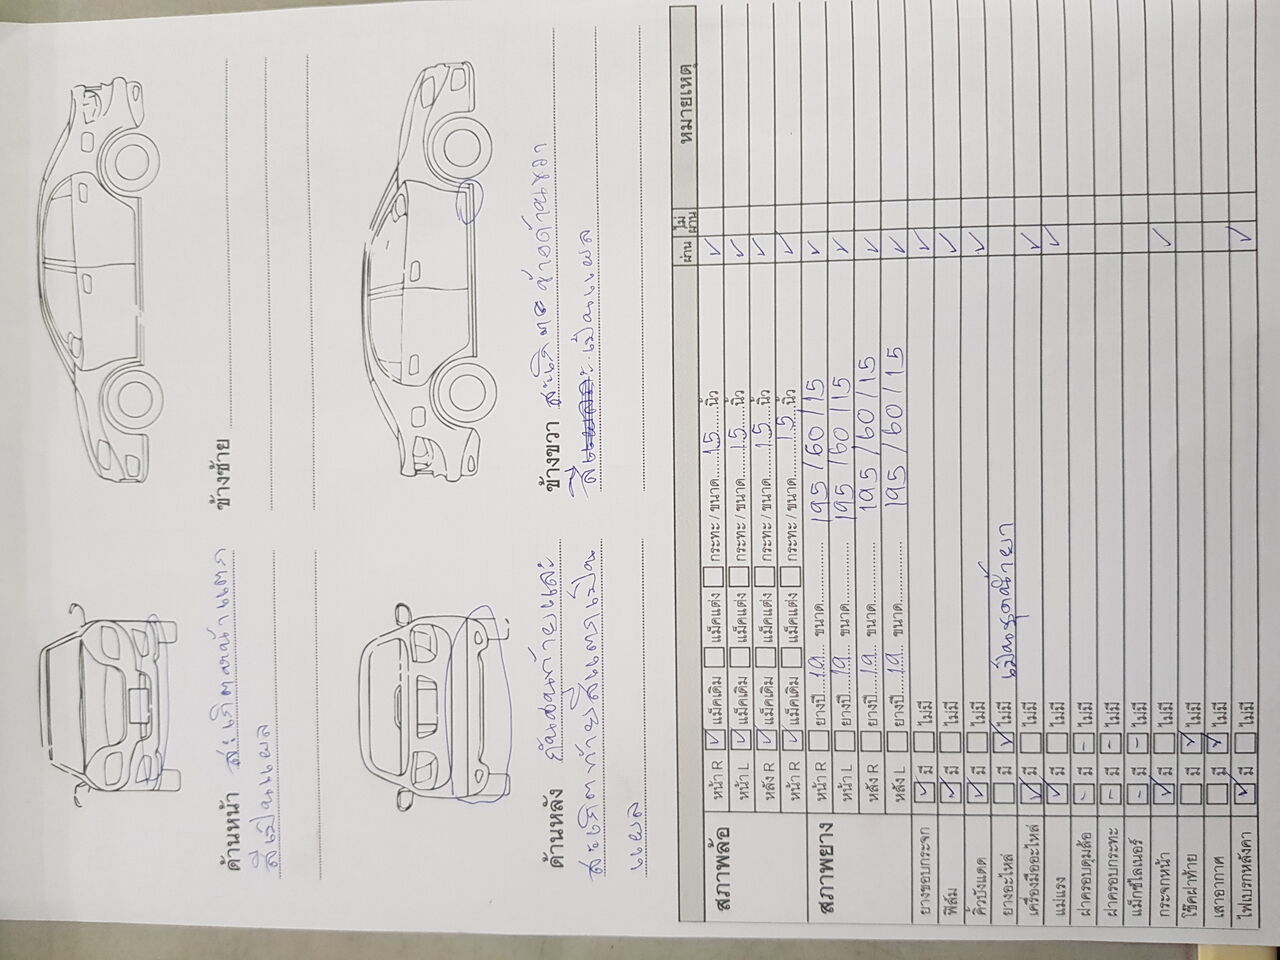 ด้านหน้า สะเก็ดหน้าแตก
สีเป็นแผล
ข้างซ้าย
ด้านหลัง กันชนท้ายและ
สะเก็ดท้ายสีแตกเป็น
แผล
ข้างขวา สะเก็ต ล่างด้านขวา
สี เป็นแผล
ผ่าน ไม่ผ่าน หมายเหตุ
สภาพล้อ หน้า R ✓ แม็คเดิม แม็คแต่ง กระทะ / ขนาด 15 นิ้ว ✓
หน้า L ✓ แม็คเดิม แม็คแต่ง กระทะ / ขนาด 15 นิ้ว ✓
หลัง R ✓ แม็คเดิม แม็คแต่ง กระทะ / ขนาด 15 นิ้ว ✓
หน้า R ✓ แม็คเดิม แม็คแต่ง กระทะ / ขนาด 15 นิ้ว ✓
สภาพยาง หน้า R ยางปี 19 ขนาด 195/60/15 ✓
หน้า L ยางปี 19 ขนาด 195/60/15 ✓
หลัง R ยางปี 19 ขนาด 195/60/15 ✓
หลัง L ยางปี 19 ขนาด 195/60/15 ✓
ยางขอบกระจก ✓ มี ไม่มี ✓
ฟิล์ม ✓ มี ไม่มี ✓
คิ้วบังแดด ✓ มี ไม่มี ✓
ยางอะไหล่ มี ✓ ไม่มี เป็นชุดน้ำยา
เครื่องมืออะไหล่ ✓ มี ไม่มี ✓
แม่แรง ✓ มี ไม่มี ✓
ฝาครอบดุมล้อ - มี - ไม่มี
ฝาครอบกระทะ - มี - ไม่มี
แม็กซ์ไลเนอร์ - มี - ไม่มี
กระจกหน้า ✓ มี ไม่มี ✓
โช๊คฝาท้าย มี ✓ ไม่มี
เสาอากาศ มี ✓ ไม่มี
ไฟเบรกหลังคา ✓ มี ไม่มี ✓